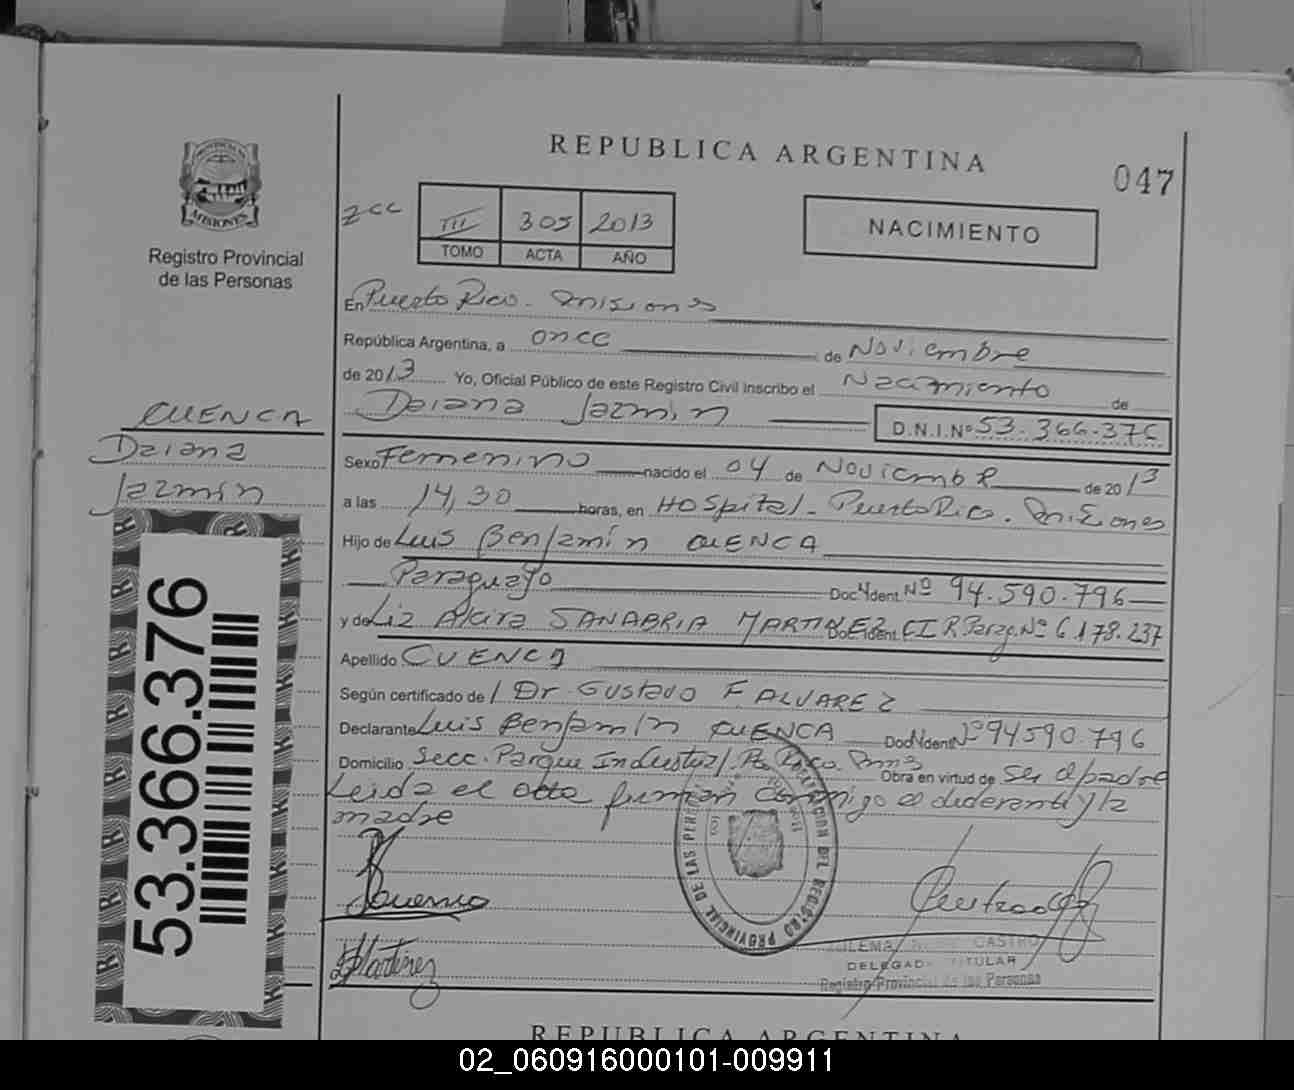 REPUBLICA ARGENTINA
047
PROVINCIA
MISIONES
Registro Provincial
de las Personas
III 305 2013
TOMO ACTA AÑO
NACIMIENTO
En Puerto Rico. Misiones
República Argentina, a once de Noviembre
de 2013 Yo, Oficial Público de este Registro Civil Inscribo el Nacimiento de
Daiana Jazmin D.N.I.Nº 53.366.376
CUENCA
Daiana
Jazmin
Sexo Femenino nacido el 04 de Noviembre de 2013
a las 14,30 horas, en Hospital - Puerto Rico. Misiones
Hijo de Luis Benjamín CUENCA
Paraguayo Doc. Ident. Nº 94.590.796
y de Liz Akira SANABRIA MARTINEZ Doc. Ident. CI R. Parag. Nº 6.178.237
Apellido CUENCA
Según certificado de Dr. Gustavo F. ALVAREZ
Declarante Luis Benjamin CUENCA Doc. Ident. Nº 94590.796
Domicilio Secc. Parque Industrial. Pto Rico. Mnes Obra en virtud de ser el padre
Leida el acta firman conmigo el declarante y la
madre
53.366.376
Martinez
CASTRO
DELEGADA TITULAR
Registro Provincial de las Personas
REPUBLICA ARGENTINA
02_060916000101-009911